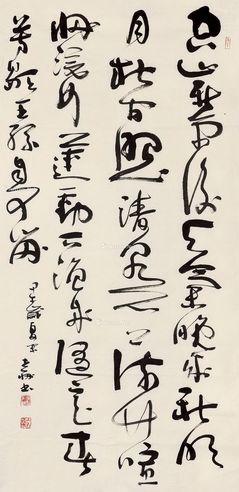 空山新雨後天氣晚來秋明
月松間照清泉石上流竹喧
歸浣女蓮動下漁舟隨意春
芳歇王孫自可留